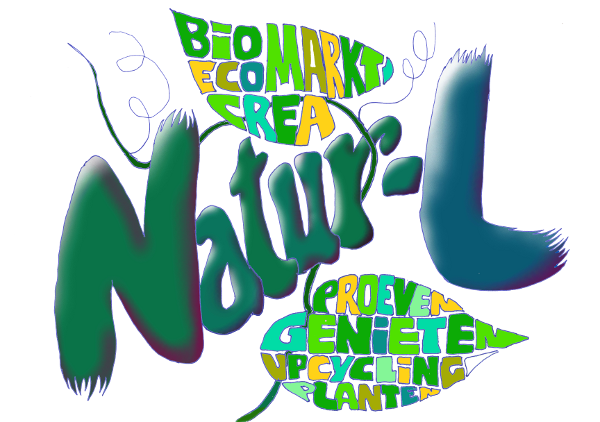 BiOMARKT
ECO
CREA
Natur-L
PROEVEN
GENiETEN
UPCYCLiNG
PLANTEN